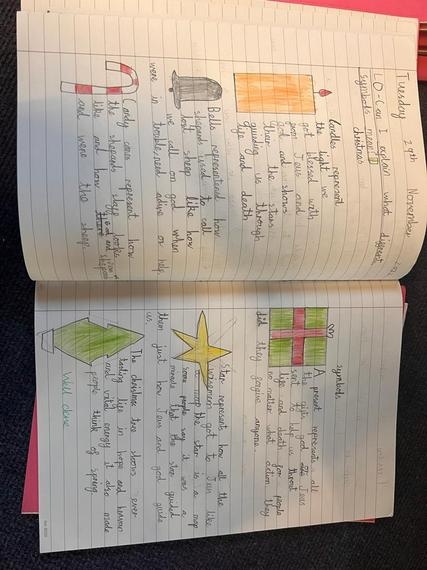 Tuesday 29th November
LO-Can I explain what different
symbols mean?
christmas
Candles represent
the light we
got blessed with
from Jesus and
god and shows
than the stars
guiding us through
life and death
Bells represented how
shepards used to call
lost sheep like how
we call on god when
were in trouble need advice or help
Candy canes represent how
the shepards staff looks
like and how
and were the sheep
symbols
A present represents all
the gift god Jesus
sent to hold us throw
life and death for people
no matter what action they
did they forgive anyone...
Star represent how all the
wisemen got to Jesus like
a map the star is a map
some people say it was a
miracle that the star guided
them just how Jesus and god guide
us.
The christmas tree shows ever
lasting life in hope and heaven
and vital energy it also made
people think of spring.
Well done